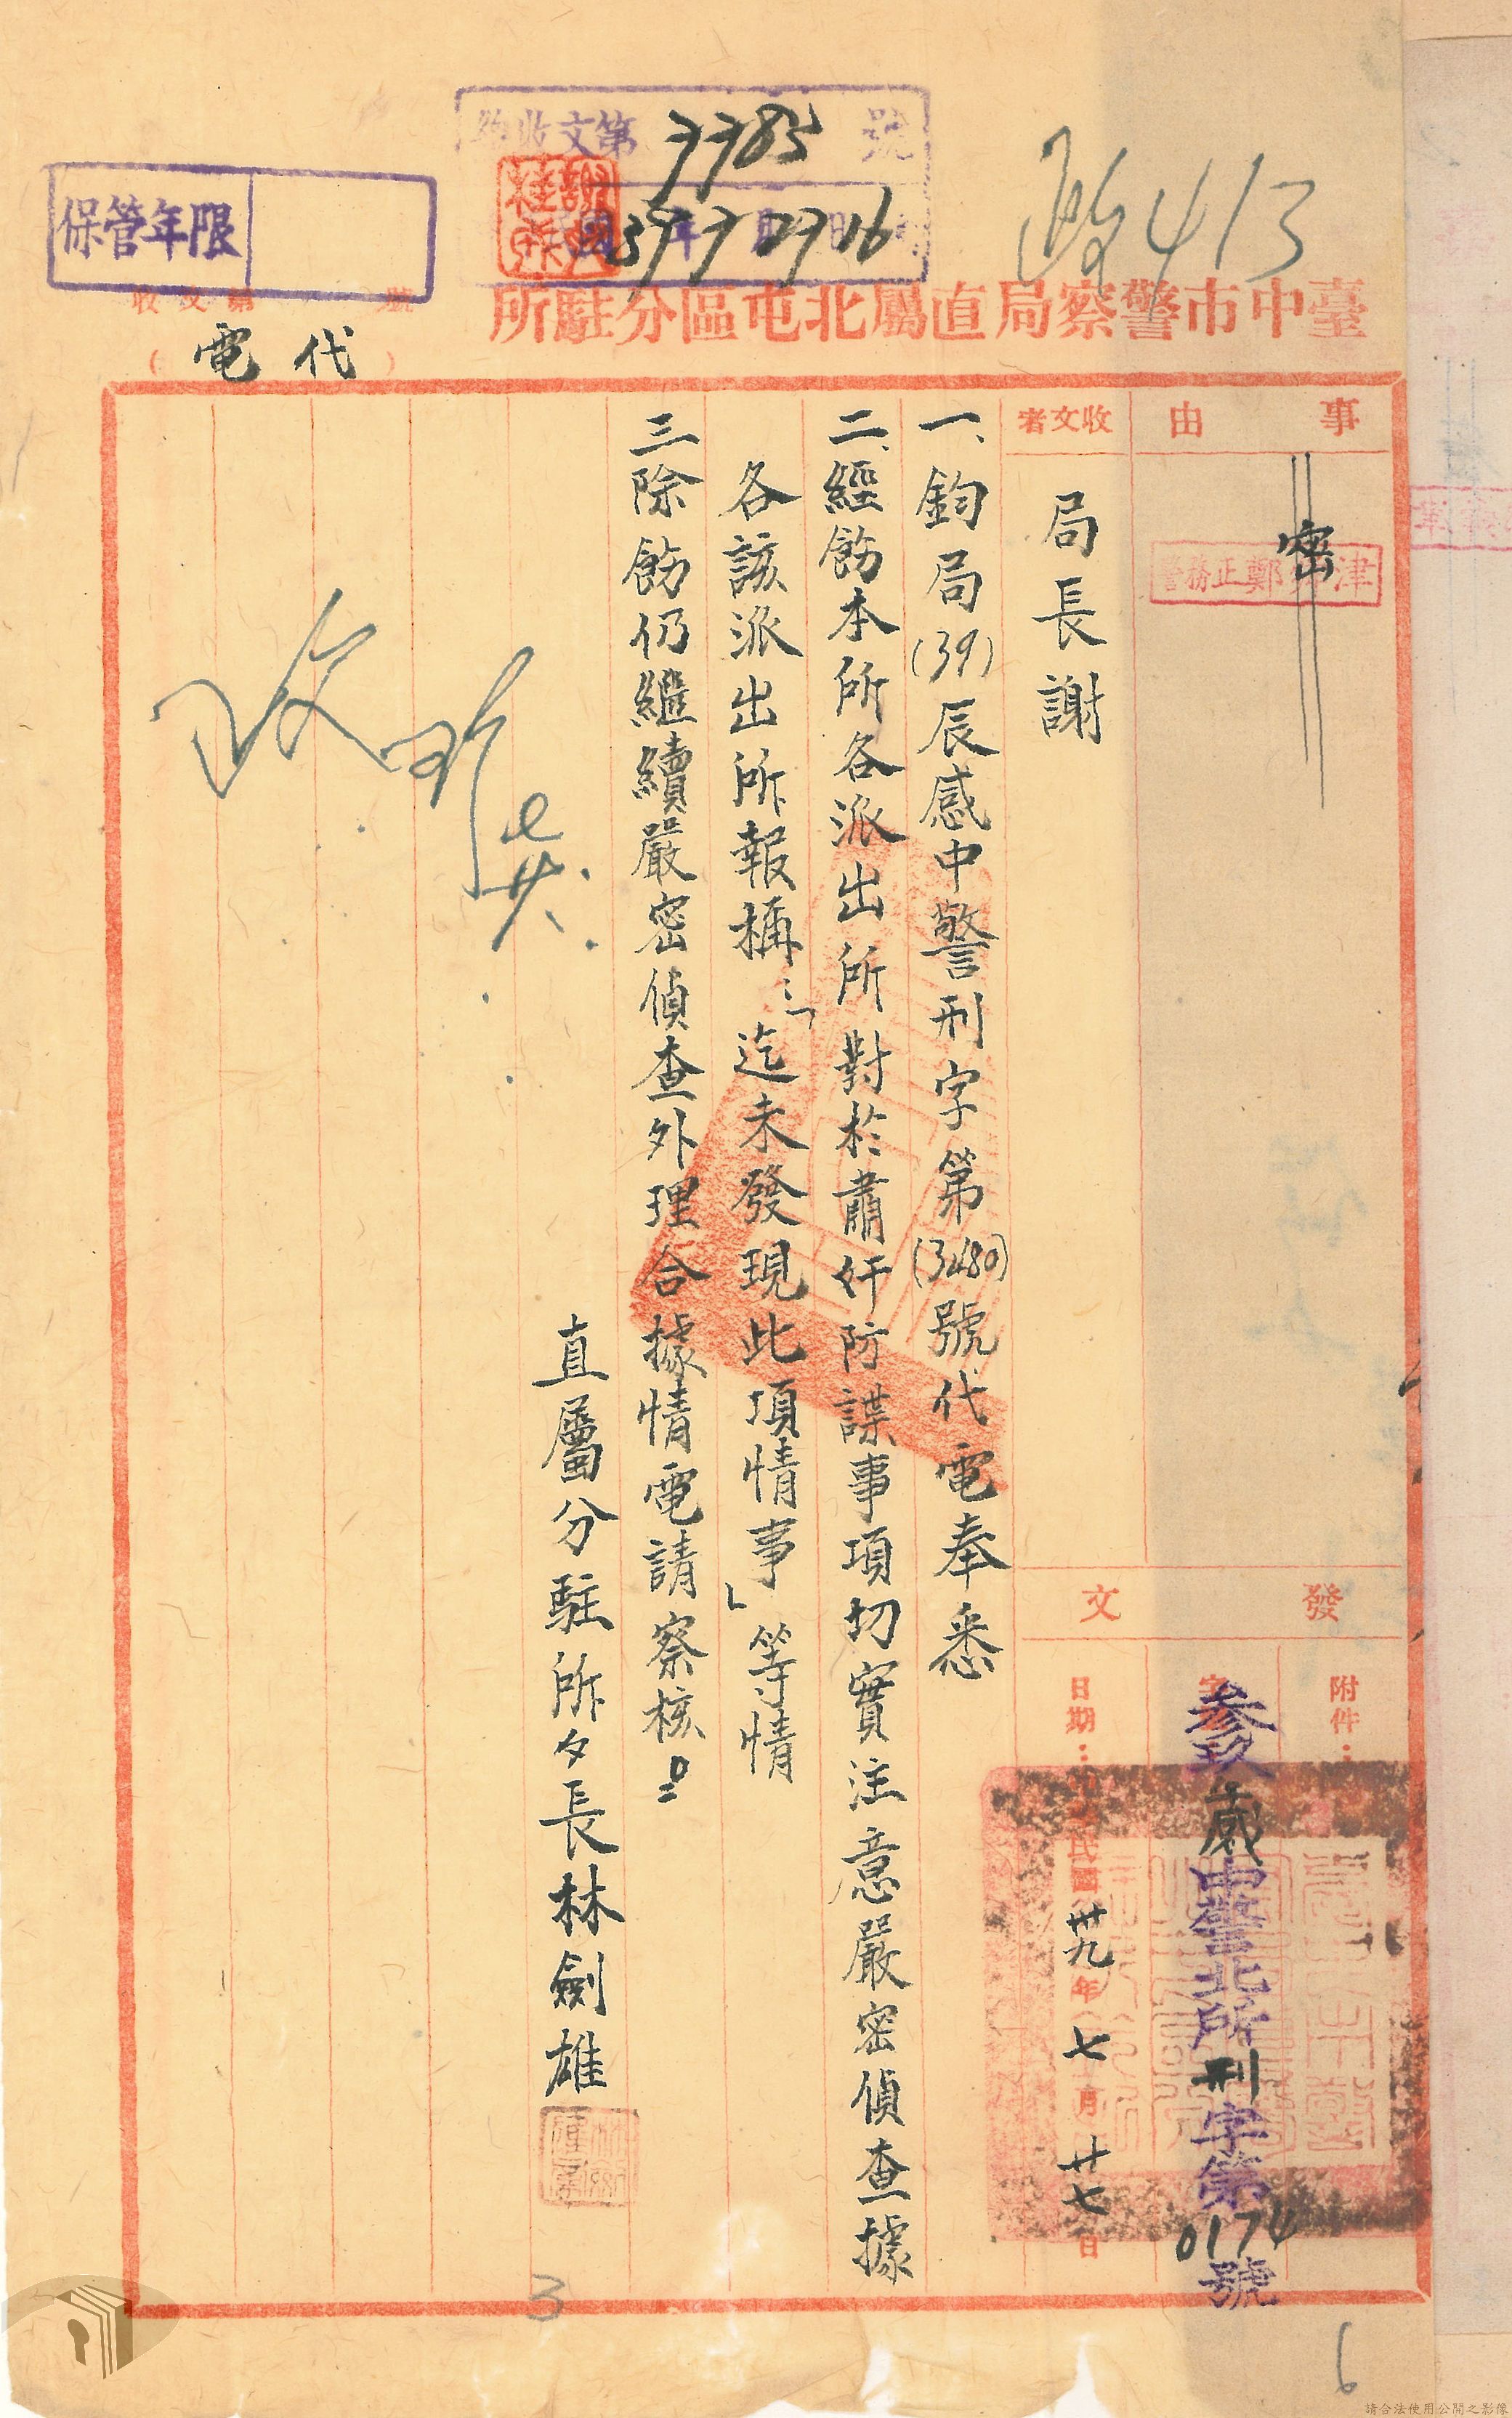 政413
收文第7785號
39 7 27 16
保管年限
收文第 號
臺中市警察局直屬北屯區分駐所
(代電)
事由
密
警務正鄭
津
收文者
局長謝
發文
附件:
字
參玖
感
中警北所
刑
字第
0174
號
日期:中華民國卅九年七月廿七日
一、鈞局(39)辰感中警刑字第(3480)號代電奉悉
二、經飭本所各派出所對於肅奸防諜事項切實注意嚴密偵查據
各該派出所報稱:「迄未發現此項情事」等情
三除飭仍繼續嚴密偵查外理合據情電請察核。
直屬分駐所々長林劍雄
3
6
請合法使用公開之影像